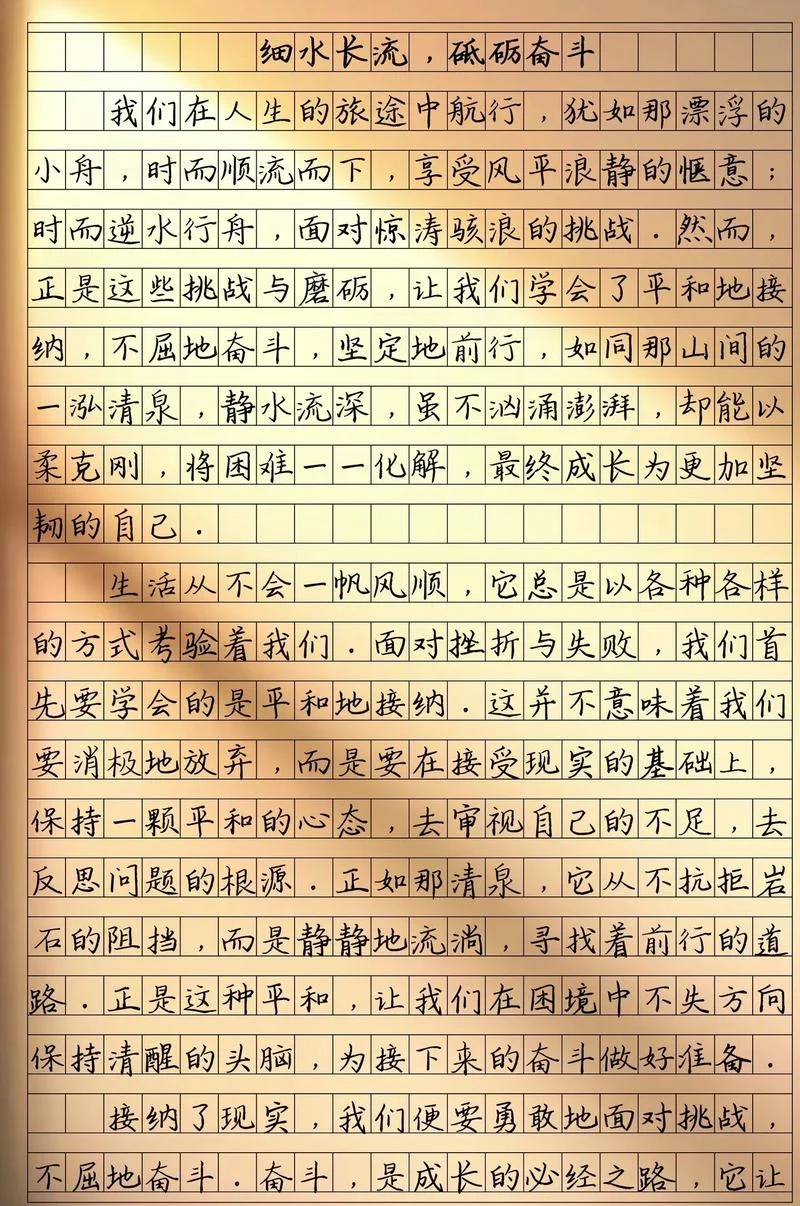 细水长流，砥砺奋斗
我们在人生的旅途中航行，犹如那漂浮的
小舟，时而顺流而下，享受风平浪静的惬意；
时而逆水行舟，面对惊涛骇浪的挑战．然而，
正是这些挑战与磨砺，让我们学会了平和地接
纳，不屈地奋斗，坚定地前行，如同那山间的
一泓清泉，静水流深，虽不汹涌澎湃，却能以
柔克刚，将困难一一化解，最终成长为更加坚
韧的自己．
生活从不会一帆风顺，它总是以各种各样
的方式考验着我们．面对挫折与失败，我们首
先要学会的是平和地接纳．这并不意味着我们
要消极地放弃，而是要在接受现实的基础上，
保持一颗平和的心态，去审视自己的不足，去
反思问题的根源．正如那清泉，它从不抗拒岩
石的阻挡，而是静静地流淌，寻找着前行的道
路．正是这种平和，让我们在困境中不失方向
保持清醒的头脑，为接下来的奋斗做好准备．
接纳了现实，我们便要勇敢地面对挑战，
不屈地奋斗．奋斗，是成长的必经之路，它让